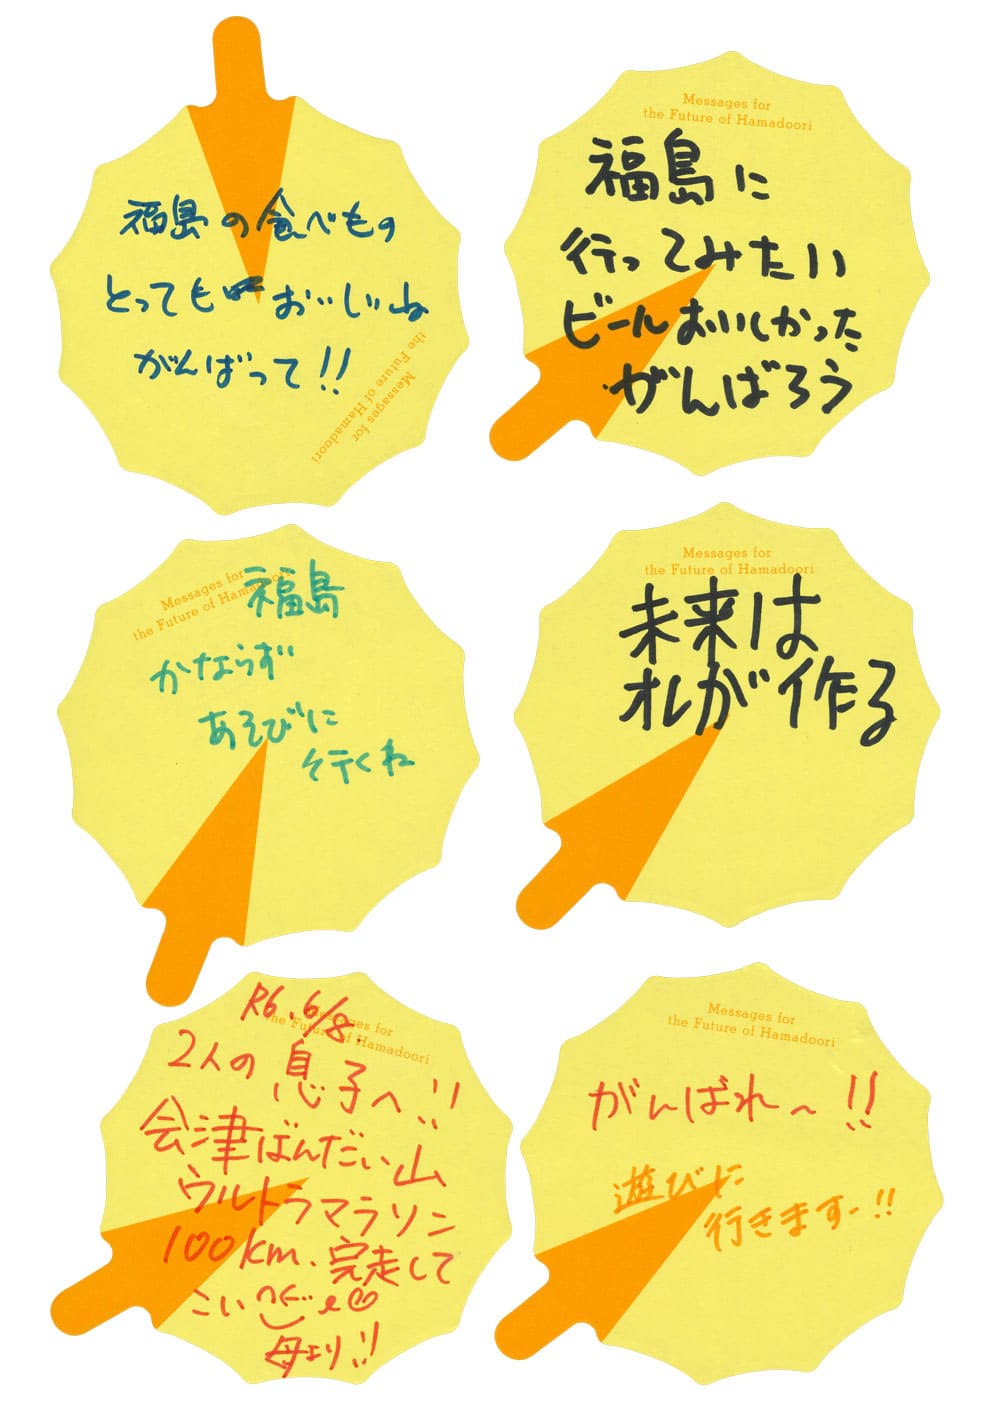 福島の食べもの
とっても おいしいね
がんばって!!
Messages for
the Future of Hamadoori
Messages for
the Future of Hamadoori
福島に
行ってみたい
ビールおいしかった
がんばろう
Messages for
the Future of Hamadoori
福島
かならず
あそびに
行くね
Messages for
the Future of Hamadoori
未来は
オレが作る
Messages for
the Future of Hamadoori
R6.6/8.
2人の息子へ!!
会津ばんだい山
ウルトラマラソン
100km.完走して
こい
母より!!
Messages for
the Future of Hamadoori
がんばれ~!!
遊びに
行きますー!!